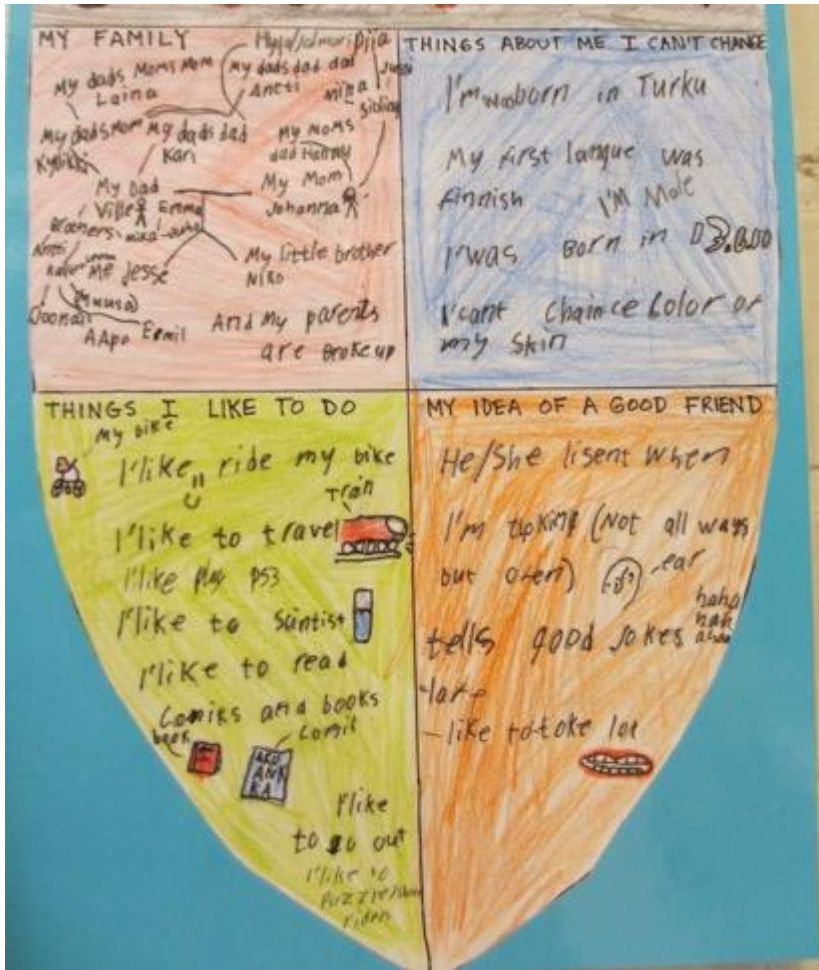 MY FAMILY
My dads Moms Mom
Laina
My dads dad dad
Antti
Mina
Sibling
My dads Mom
My dads dad
Kari
My Moms
dad Hanny
My Dad
Ville
Emma
My Mom
Johanna
Brothers
Me Jesse
My little brother
Niko
AApo
Eemil
And My parents
are Broke up
THINGS ABOUT ME I CAN'T CHANGE
born in Turku
My first langue was
finnish
I'M Male
I'was Born in
I'cant Chaince Color of
my Skin
THINGS I LIKE TO DO
My bike
I'like ride my bike
Train
I'like to travel
I'like play PS3
I'like to Scintist
I'like to read
Comiks and books
book
Comic
AKU
ANK
KA
I'like
to go out
I'like to
MY IDEA OF A GOOD FRIEND
He/She lisent when
I'm (Not all ways
but ofen)
ear
tells good Jokes
haha
hah
ahaa
-like to toke lot